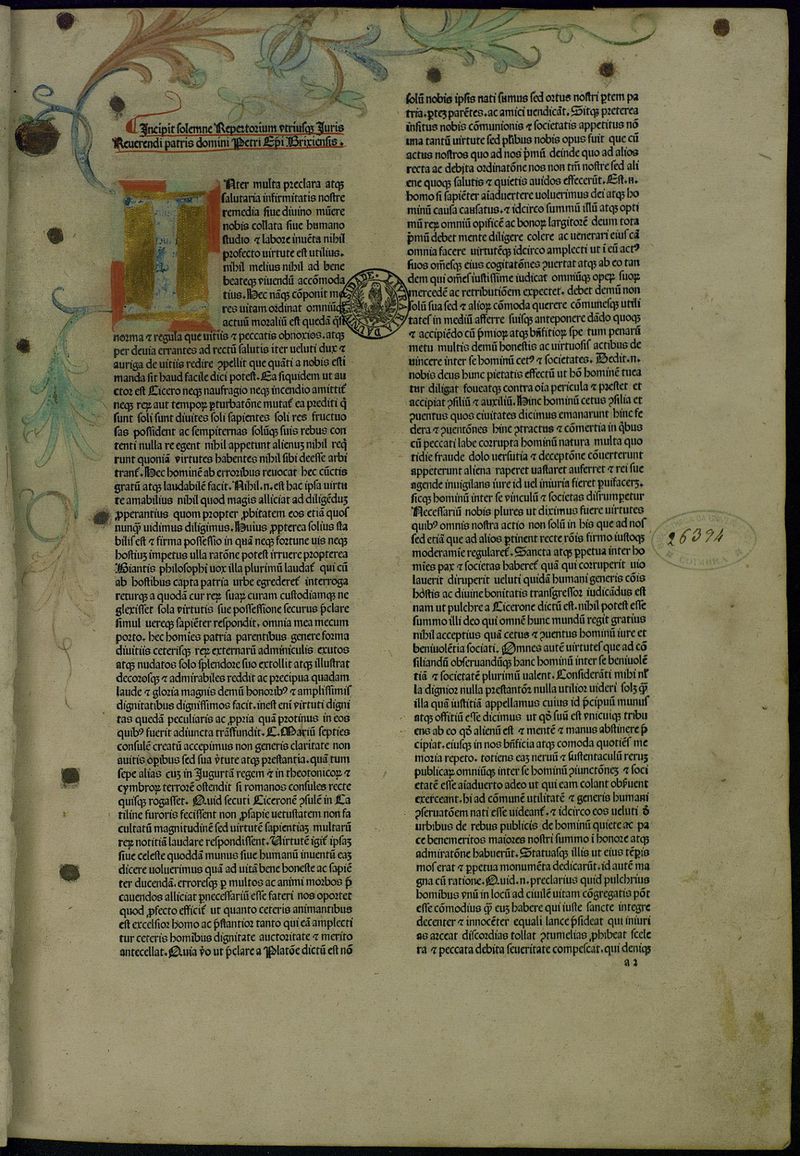 Incipit solemne Repertorium vtriusq; Juris
Reuerendi patris domini Petri Epi Brixiensis.
INter multa preclara atq;
salutaria infirmitatis nostre
remedia siue diuino mũere
nobis collata siue humano
studio ⁊ labore inuẽta nihil
profecto uirtute est utilius.
nihil melius nihil ad bene
beateq; viuendũ accõmoda
tius. Hec nãq; cõponit m
res uitam ordinat omniũq;
actuũ moraliũ est quedã
norma ⁊ regula que uitiis ⁊ peccatis obnoxios. atq;
per deuia errantes ad rectũ salutis iter ueluti dux ⁊
auriga de uitiis redire ꝯpellit que quãti a nobis esti
manda sit haud facile dici potest. Ea siquidem ut au
ctor est Cicero neq; naufragio neq; incendio amittit̃
neq; reꝝ aut tempoꝝ ꝑturbatõne mutat̃ ea prediti q̃
sunt soli sunt diuites soli sapientes soli res fructuo
sas possident ac sempiternas solũq; suis rebus con
tenti nulla re egent nihil appetunt alienuʒ nihil req̃
runt quoniã virtutes habentes nihil sibi deesse arbi
trant̃. Hec hominẽ ab erroribus reuocat hec cũctis
gratũ atq; laudabilẽ facit. Nihil .n. est hac ipsa uirtu
te amabilius nihil quod magis alliciat ad diligẽduʒ
ꝓperantius quom propter ꝓbitatem eos etiã quos
nunq̃ uidimus diligimus. Huius ꝓpterea solius sta
bilis est ⁊ firma possessio in quã neq; fortune uis neq;
hostiuʒ impetus ulla ratõne potest irruere propterea
Biantis philosophi uox illa plurimũ laudat̃ qui cũ
ab hostibus capta patria urbe egrederet̃ interroga
returq; a quodã cur reꝝ suaꝝ curam custodiamq; ne
glexisset sola virtutis sue possessione securus p̃clare
simul uereq; sapiẽter respondit. omnia mea mecum
porto. hec homies patria parentibus genere forma
diuitiis ceterisq; reꝝ externarũ adminiculis exutos
atq; nudatos solo splendore suo extollit atq; illustrat
decorosq; ⁊ admirabiles reddit ac precipua quadam
laude ⁊ gloria magnis demũ honoribꝰ ⁊ amplissimis
dignitatibus dignissimos facit. inest eni virtuti digni
tas quedã peculiaris ac ꝓpria quã protinus in eos
quibꝰ fuerit adiuncta trãsfundit. C. Mariũ septies
consulẽ creatũ accepimus non generis claritate non
auitis opibus sed sua v̾tute atq; prestantia. quã tum
sepe alias cuʒ in Jugurtã regem ⁊ in theotonicoꝝ ⁊
cymbroꝝ terrorẽ ostendit si romanos consules recte
quisq; rogasset. Quid secuti Ciceronẽ ꝯsulẽ in Ca
tiline furoris fecissent non ꝓsapie uetustatem non fa
cultatũ magnitudinẽ sed uirtutẽ sapientiaʒ multarũ
reꝝ notitiã laudare respondissent. Uirtutẽ igit̃ ipsaʒ
siue celeste quoddã munus siue humanũ inuentũ eaʒ
dicere uoluerimus quã ad uitã bene honeste ac sapiẽ
ter ducendã. erroresq; ꝑ multos ac animi morbos p̃
cauendos alliciat ꝓnecessariũ esse fateri nos oportet
quod ꝓfecto efficit̃ ut quanto ceteris animantibus
est excelsior homo ac p̃stantior tanto qui eã amplecti
tur ceteris homibus dignitate auctoritate ⁊ merito
antecellat. Quia v̾o ut p̃clare a Platõe dictũ est nõ
solũ nobis ipsis nati sumus sed ortus nostri ꝑtem pa
tria. ꝑteʒ parẽtes. ac amici uendicãt. Sitq; preterea
insitus nobis cõmunionis ⁊ societatis appetitus nõ
una tantũ uirtute sed plibus nobis opus fuit que cũ
actus nostros quo ad nos p̃mũ deinde quo ad alios
recta ac debita ordinatõne nos non tm̃ nostre sed ali
ene quoq; salutis ⁊ quietis auidos effecerũt. Est .n.
homo si sapiẽter aiaduertere uoluerimus dei atq; ho
minũ causa causatus. ⁊ idcirco summũ illũ atq; opti
mũ reꝝ omniũ opificẽ ac bonoꝝ largitorẽ deum tota
p̃mũ debet mente diligere colere ac uenerari eiusq̃
omnia facere uirtuteq; idcirco amplecti ut i eũ actꝰ
suos om̃esq; eius cogitatões ꝯuertat atq; ab eo tan
dem qui om̃es iustissime iudicat omniũq; opeꝝ suoꝝ
mercedẽ ac retributiõem expectet. debet demũ non
solũ sua sed ⁊ alioꝝ cõmoda querere cõmunesq; utili
tates in mediũ afferre suisq; anteponere dãdo quoq;
⁊ accipiẽdo cũ p̃mioꝝ atq; bñfitioꝝ spe tum penarũ
metu multis demũ honestis ac uirtuosis actibus de
uincere inter se hominũ cetꝰ ⁊ societates. Dedit .n.
nobis deus hunc pietatis effectũ ut hõ hominẽ tuea
tur diligat foueatq; contra oia pericula ⁊ p̃stet et
accipiat ꝯsiliũ ⁊ auxiliũ. Hinc hominũ cetus ꝯsilia et
ꝯuentus quos ciuitates dicimus emanarunt hinc fe
dera ⁊ ꝯuentões hinc ꝯtractus ⁊ cõmertia in q̃bus
cũ peccati labe corrupta hominũ natura multa quo
tidie fraude dolo uersutia ⁊ deceptõne cõuerterunt
appeterunt aliena raperet uastaret auferret ⁊ rei sue
agende inuigilans iure id ud iniuria fieret ꝓuifacerʒ.
sicq; hominũ inter se vinculũ ⁊ societas disrumpetur
Necessariũ nobis plures ut diximus fuere uirtutes
quibꝰ omnis nostra actio non solũ in his que ad nos
sed etiã que ad alios ꝑtinent recte rõis firmo iustoq;
moderamie regularet̃. Sancta atq; ꝑpetua inter ho
mies pax ⁊ societas haberet̃ quã qui corruperit uio
lauerit diruperit ueluti quidã humani generis cõis
hostis ac diuine bonitatis transgressor iudicãdus est
nam ut pulchre a Cicerone dictũ est. nihil potest esse
summo illi deo qui omnẽ hunc mundũ regit gratius
nihil acceptius quã cetus ⁊ ꝯuentus hominũ iure et
beniuolẽtia sociati. Omnes autẽ uirtutes que ad cõ
siliandũ obseruandũq; hanc hominũ inter se beniuolẽ
tiã ⁊ societatẽ plurimũ ualent. Considerãti mihi nł
la dignior nulla prestantor nulla utilior uideri solʒ q̃
illa quã iustitiã appellamus cuius id p̃cipuũ munus
atq; offitiũ esse dicimus ut qõ suũ est vnicuiq; tribu
ens ab eo qõ alienũ est ⁊ mentẽ ⁊ manus abstinere p̃
cipiat. eiusq; in nos bñficia atq; comoda quotiẽs me
moria repeto. totiens eaʒ neruũ ⁊ sustentaculũ reruʒ
publicaꝝ omniũq; inter se hominũ ꝯiunctõneʒ ⁊ soci
etatẽ esse aiaduerto adeo ut qui eam colant obẽruent
exerceant. hi ad cõmunẽ utilitatẽ ⁊ generis humani
ꝯseruatõem nati esse uideant̃. ⁊ idcirco eos ueluti d̾
urbibus de rebus publicis de hominũ quiete ac pa
ce benemeritos maiores nostri summo i honore atq;
admiratõne habuerũt. Statuasq; illis ut eius tẽpis
mos erat ⁊ ꝑpetua monumẽta dedicarũt. id autẽ ma
gna cũ ratione. Quid .n. preclarius quid pulchrius
homibus vnũ in locũ ad ciuilẽ uitam cõgregatis põt
esse cõmodius q̃ euʒ habere qui iuste sancte integre
decenter ⁊ innocẽter equali lance p̃sideat qui iniuri
as arceat discordias tollat ꝯtumelias ꝓhibeat scele
ra ⁊ peccata debita seueritate compescat. qui deniq;
a 2
26394